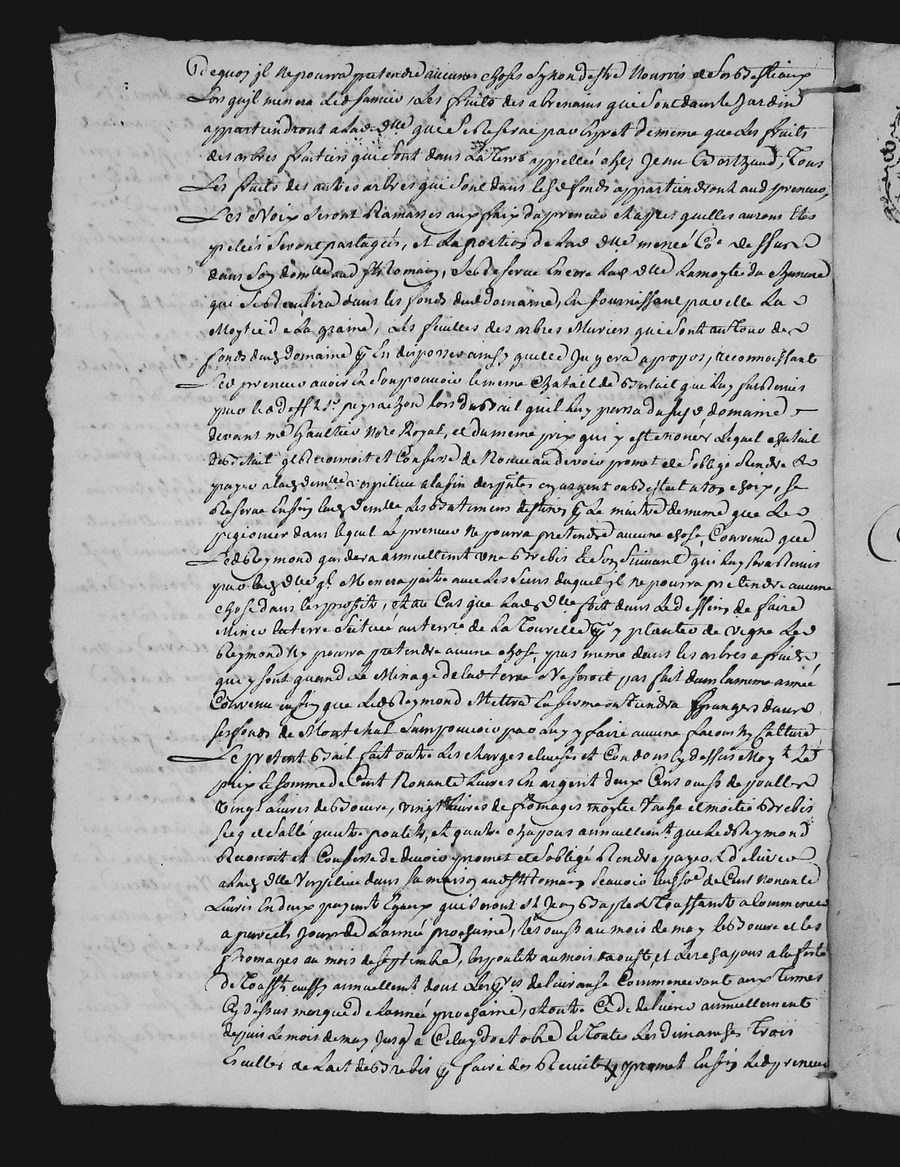 De quoy jl ne pourra pretendre aucunes choses synon destre nourris et ses bestiaux
Lors qu'jl menera led fumier, Les fruits des abrenams qui sont dans le Jardin
appartiendront a lad dlle que se reserve par expret de meme que les fruits
des arbres fruitiers qui sont dans la terre appellée chez Jean Bertrand, Tous
Les fruits des autres arbres qui sont dans lesd fonds appartiendront aud preneur,
Les Noix seront Ramassés aux fraix du preneur et apres quelles auront Etés
pelées seront partagées, et la portion de lad dlle menée
dans son domlle aud St Romain, se reserve Encore lad dlle la moytié du chanvre
que se recullira dans les fonds dud domaine, En fournissant par elle La
Moytié de La graine, Les feuilles des arbres Muriers qui sont au Tour des
fonds dud Domaine pr En disposer ainsy quelle Jugera a propos, reconnoissant
Led preneur avoir en son pouvoir le meme chatail de Bestail que luy fut Remis
par led defft sr peyrachon lors du Bail quil luy passa du susd domaine
devant me Gaultier Nore Royal, et du meme prix qui y est enoncé Lequel chatail
de Bestail jl Reconnoit et Confesse de Nouveau devoir promet et s'oblige Rendre et
payer a lad demlle a la fin des pntes en argent ou Bestail a son choix, se
Reserve Enfin lad demlle Les Batiments destinés pr Le maitre de meme que Le
pigeonier dans lequel Le preneur Ne pourra pretendre aucune chose, Convenu que
Led Reymond gardera annuellemt une Brebis et son suivant qui luy sera Remis
par lad dlle qu'jl Menera paitre avec Les siens duquel jl ne pourra pretendre aucune
chose dans les profits, et au Cas que lad dlle fut dans Le dessein de faire
Miner la terre scituée au terre de La Tourelle pr y planter de vigne Led
Reymond N'y pourra pretendre aucune chose pas meme dans les arbres a fruits
que y sont quand Le Minage de lad terre Ne seroit pas fait dans la meme année
Convenu enfin que Led Reymond Mettra
ses fonds de Montchal sans pouvoir par luy y faire aucune facon Ny Culture
Le present Bail fait outre Les charges clauses et Conditions Cy dessus Moyt Le
prix et somme de Cent Nonante Livres En argent deux Cens oeufs de poulle
vingt Livres de Beurre, vingt Livres de fromages moytié vache et moitié Brebis
sec et sallé quatre poulets, et quatre chapons annuellemt que led Reymond
Reconoit et Confesse devoir promet et s'oblige Rendre payer et delivrer
a lad dlle dans sa maison aud St Romain scavoir lad sse de Cent Nonante
Livres En deux payemts Egaux qui seront st Jean Baptiste et Toussaints a Commencer
a pareils Jours de L'année prochaine, les oeufs au mois de may Le Beurre et les
fromages au mois de septembre, les poulets au mois d'aoust, et Les chapons a la fete
de Toussts aussy annuellemt dont Les prs delivrance Commenceront aux Termes
Cy dessus marqués de L'année prochaine, et outre Ce de delivrer annuellement
depuis Le mois de may Jusq a Celuy d'octobre Et Toutes Les dimanches Trois
Escuelles de Lait de Brebis pr faire des Recuites, promet Enfin Led preneur